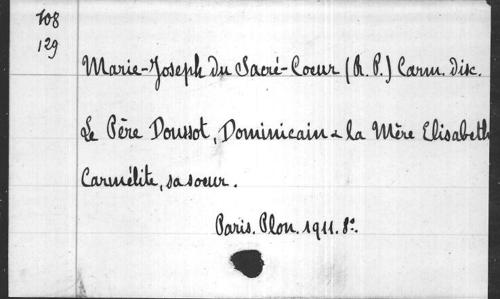 708
129
Marie-Joseph du Sacré-Coeur (R. P.) Carm. disc.
Le Père Doussot, Dominicain & la Mère Elisabeth
Carmélite, sa soeur.
Paris. Plon. 1911. 8°.